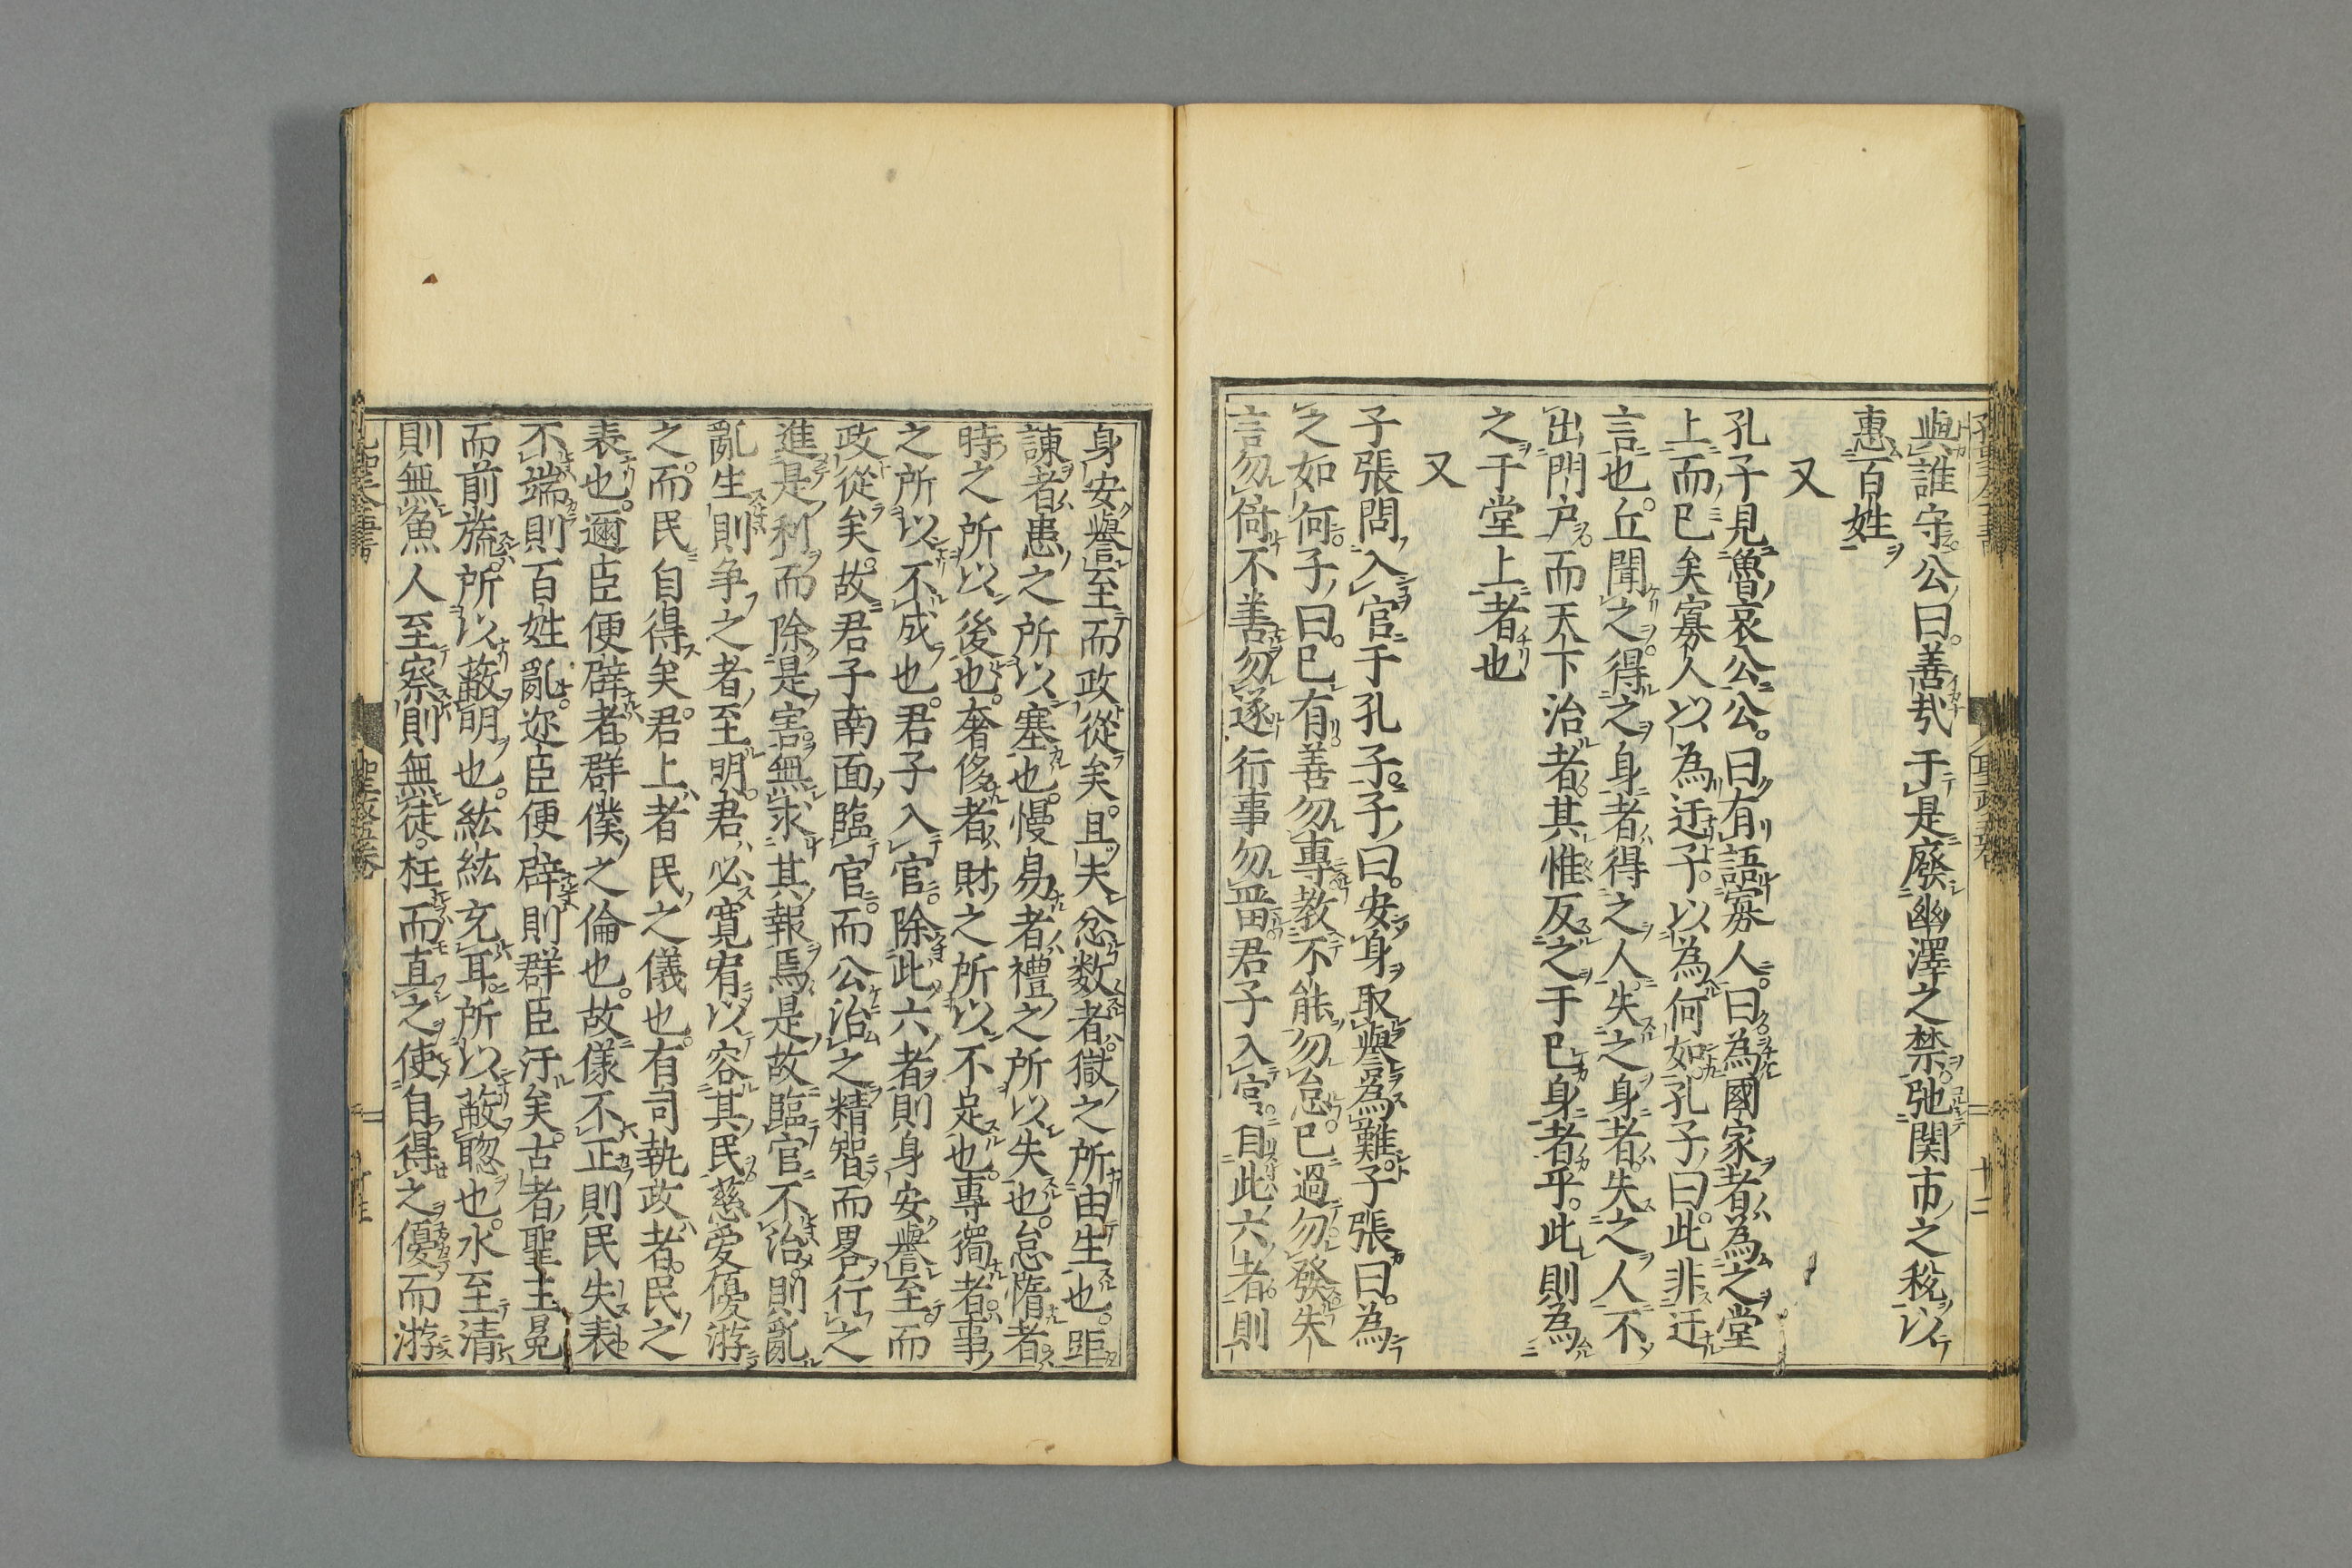 與誰守公曰善㢤于是廢幽澤之禁弛関市之税以
惠百姓
又
孔子見魯哀公公曰有語寡人曰為國家者為之堂
上而已矣寡人以為迂予以為何如孔子曰此非迂
言也丘聞之得之身者得之人失之身者失之人不
出門户而天下治者其惟反之于已身者乎此則為
之于堂上者也
又
子張問入官于孔子子曰安身取譽為難子張曰為
之如何子曰已有善勿專教不能勿怠已過勿發失
言勿倚不善勿遂行事勿畱君子入官自此六者則
身安譽至而政從矣且夫忿数者獄之所由生也距
諌者患之所以塞也慢易者禮之所以失也怠惰者
時之所以後也奢侈者財之所以不足也專獨者事
之所以不成也君子入官除此六者則身安譽至而
政從矣故君子南面臨官而公治之精智而畧行之
進是利而除是害無求其報焉是故臨官不治則亂
亂生則争之者至明君必寛宥以容其民慈愛優游
之而民自得矣君上者民之儀也有司執政者民之
表也邇臣便辟者群僕之倫也故儀不正則民失表
不端則百姓亂迩臣便辟則群臣汙矣古者聖主冕
而前旒所以蔽明也紘紞充耳所以蔽聡也水至清
則無魚人至察則無徒枉而直之使自得之優而游